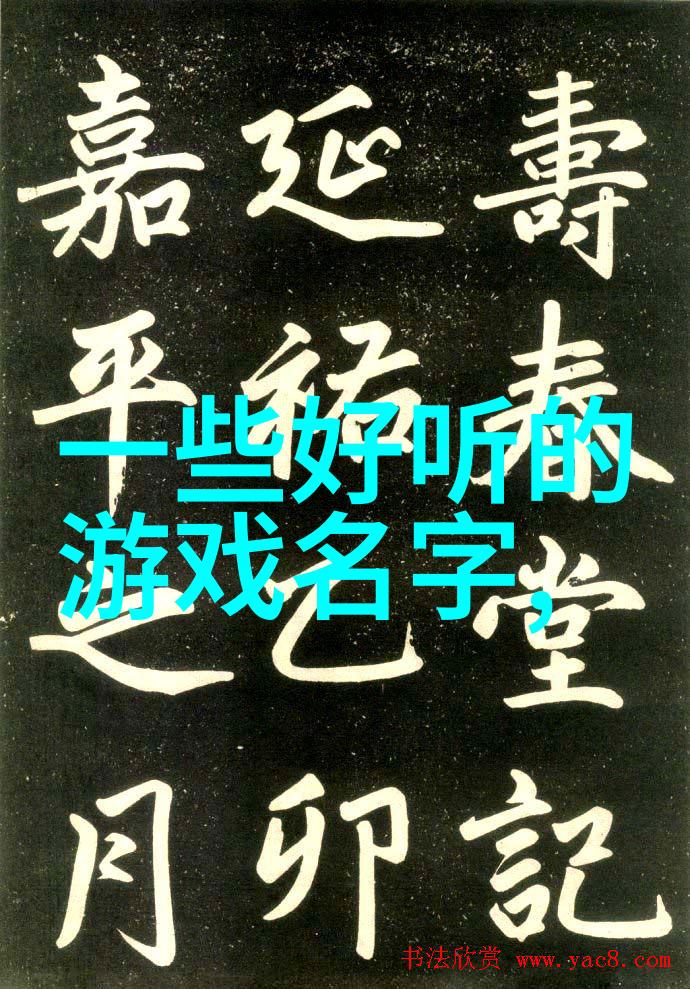 壽泰堂記
延祐乙卯
嘉平之月
一些好听的
游戏名字,
书法欣赏 www.yac8.com